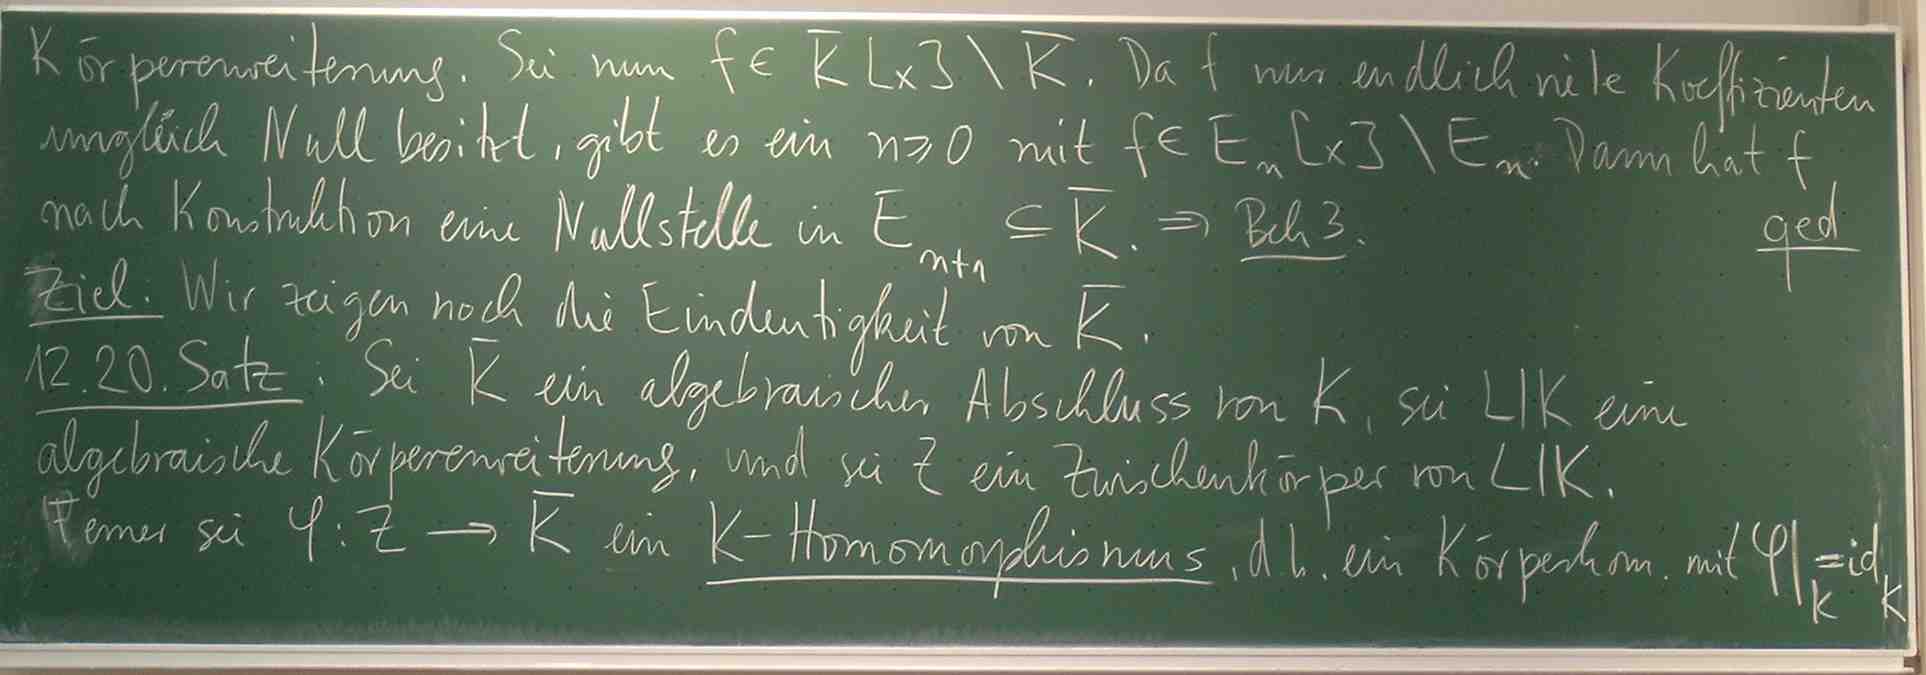 Körpererweiterung. Sei nun f ∈ K̅[x] \ K̅. Da f nur endlich viele Koeffizienten
ungleich Null besitzt, gibt es ein n ≥ 0 mit f ∈ Eₙ[x] \ Eₙ. Dann hat f
nach Konstruktion eine Nullstelle in Eₙ₊₁ ⊆ K̅. ⇒ Beh 3. qed
Ziel: Wir zeigen noch die Eindeutigkeit von K̅.
12.20. Satz: Sei K̅ ein algebraischer Abschluss von K, sei L|K eine
algebraische Körpererweiterung, und sei Z ein Zwischenkörper von L|K.
Ferner sei φ: Z → K̅ ein K-Homomorphismus, d.h. ein Körperhom. mit φ|_K = id_K